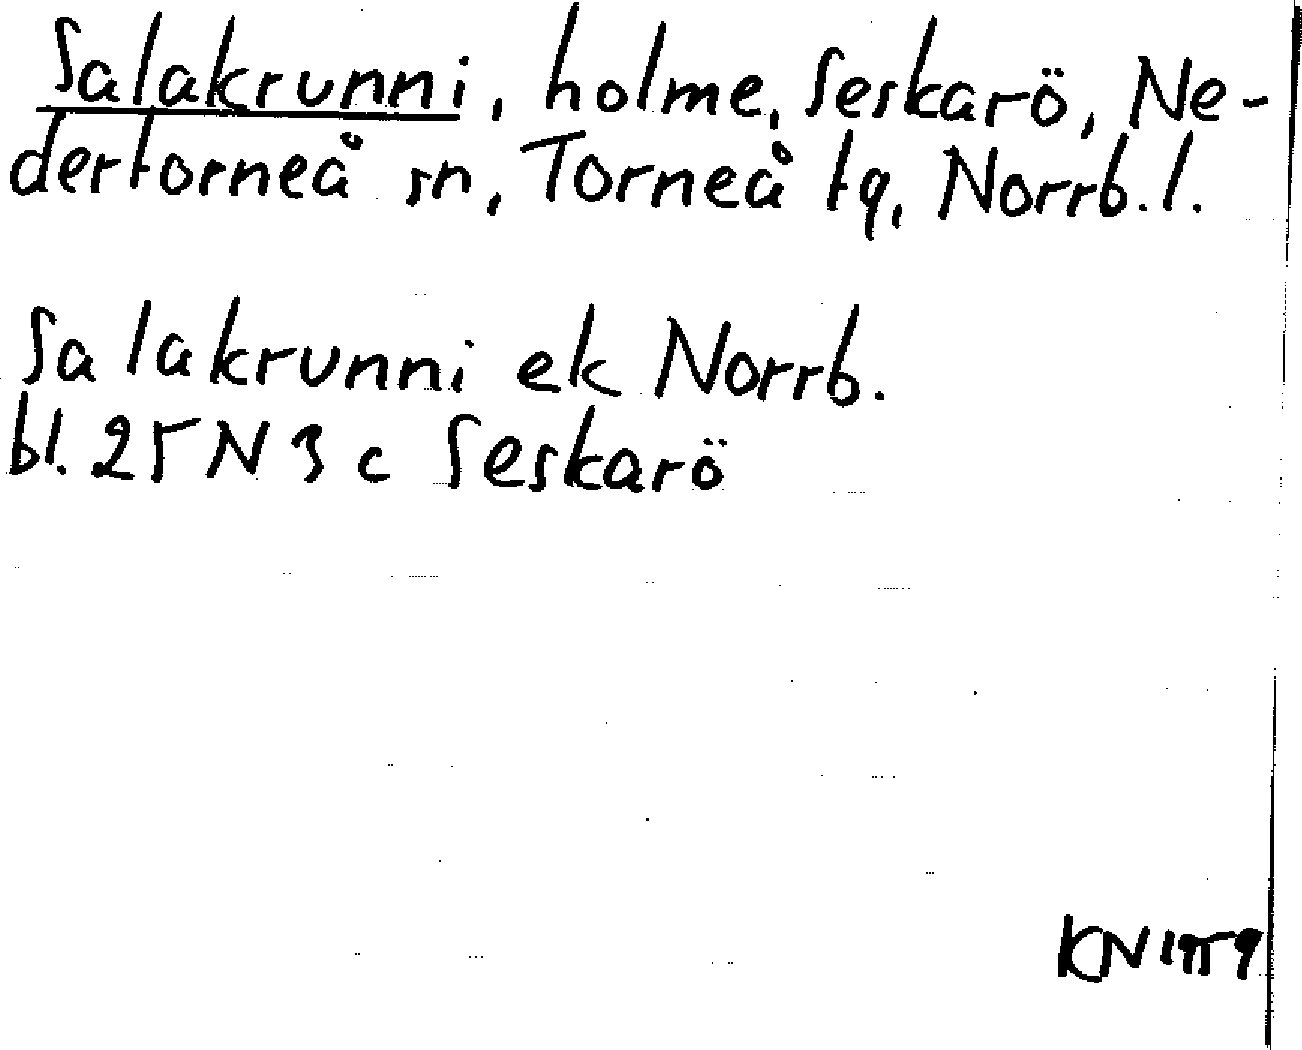 Salakrunni, holme, Seskarö, Ne-
dertorneå sn, Torneå tg, Norrb. l.
Salakrunni ek Norrb.
bl. 25 N 3 c Seskarö
KN 1959